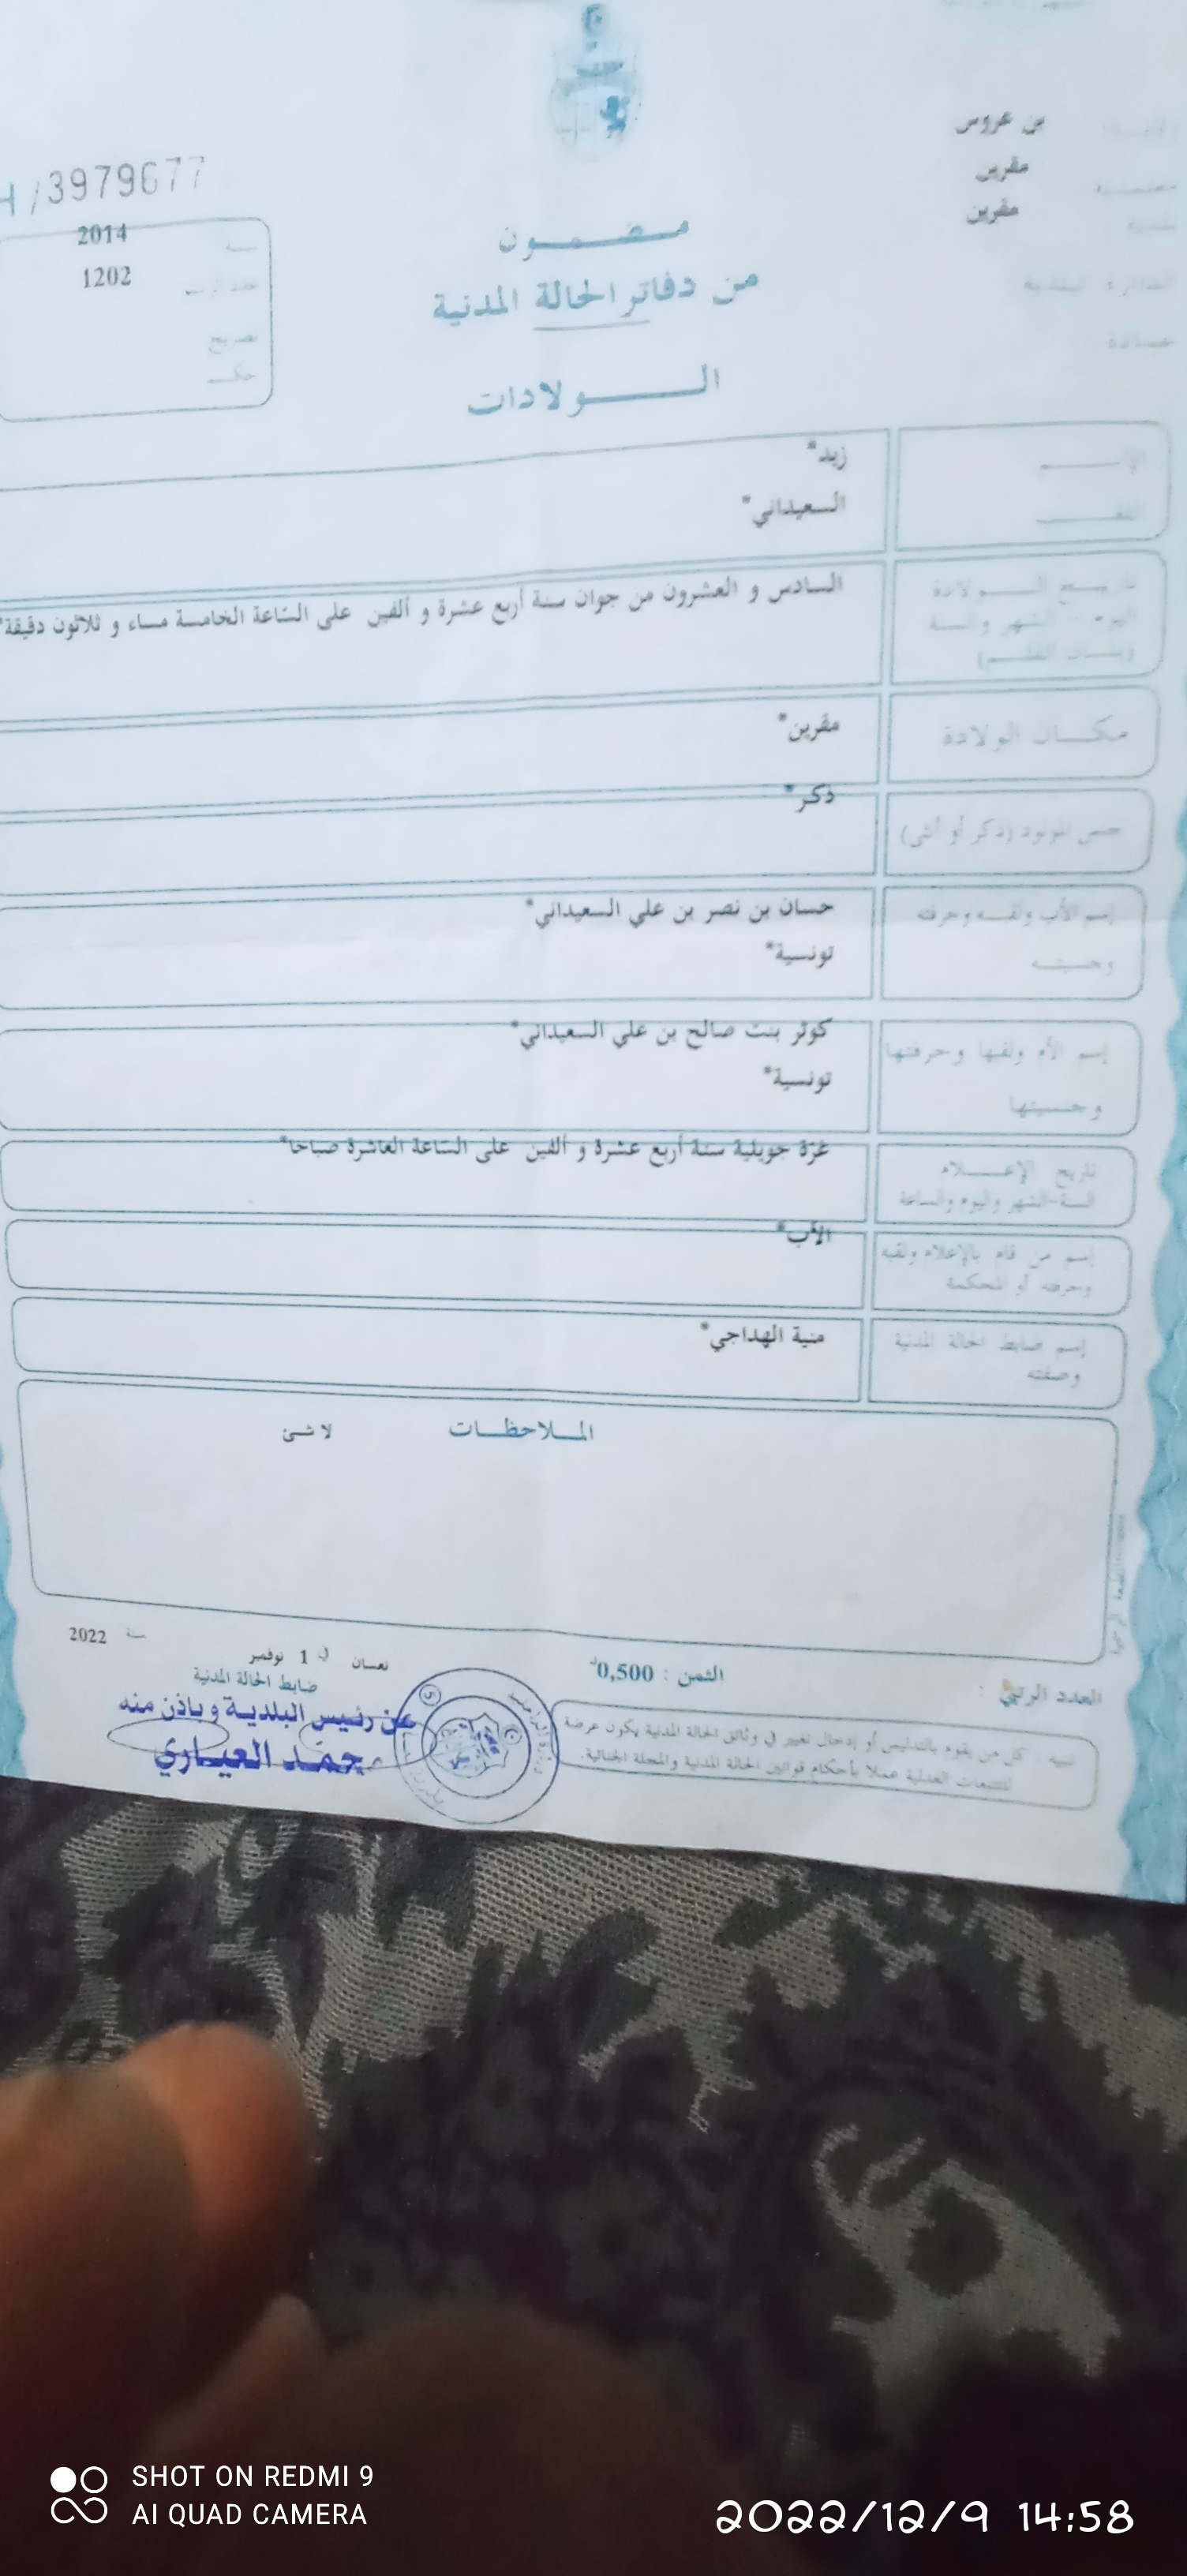 بن عروس
مقرين
مقرين
/3979677
2014
1202
تصريح
حكم
مضمون
من دفاتر الحالة المدنية
الولادات
زيد*
السعيداني*
تاريخ الولادة
السادس و العشرون من جوان سنة أربع عشرة و ألفين على الساعة الخامسة مساء و ثلاثون دقيقة*
اليوم - الشهر والسنة
مكان الولادة
مقرين*
جنس المولود (ذكر أو أنثى)
ذكر*
إسم الأب ولقبه وحرفته
وجنسيته
حسان بن نصر بن علي السعيداني*
تونسية*
إسم الأم ولقبها وحرفتها
وجنسيتها
كوثر بنت صالح بن علي السعيداني*
تونسية*
تاريخ الإعلام
السنة-الشهر واليوم والساعة
غرّة جويلية سنة أربع عشرة و ألفين على الساعة العاشرة صباحا*
إسم من قام بالإعلام ولقبه
وحرفته أو المحكمة
الأب*
إسم ضابط الحالة المدنية
وصفته
منية الهداجي*
الملاحظات لا شئ
العدد الرتبي :
الثمن : 0,500د
1 نوفمبر سنة 2022
ضابط الحالة المدنية
عن رئيس البلدية وباذن منه
محمد العياري
تنبيه كل من يقوم بالتدليس أو إدخال تغيير في وثائق الحالة المدنية يكون عرضة
للتتبعات العدلية عملا بأحكام قوانين الحالة المدنية والمجلة الجنائية.
SHOT ON REDMI 9
AI QUAD CAMERA
2022/12/9 14:58